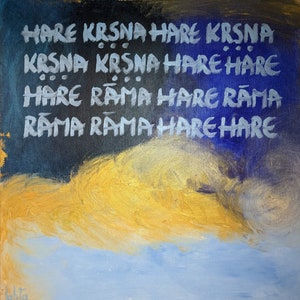 HARE KṚṢṆA HARE KṚṢṆA
KṚṢṆA KṚṢṆA HARE HARE
HARE RĀMA HARE RĀMA
RĀMA RĀMA HARE HARE